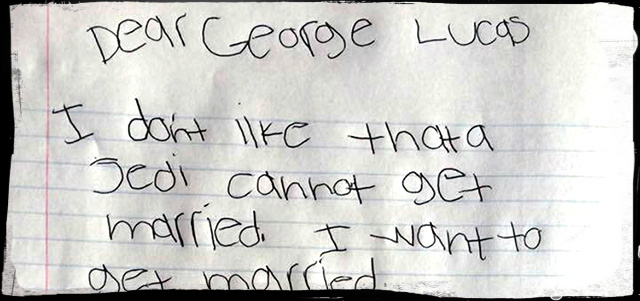 Dear George Lucas
I don't like that a
Jedi cannot get
married. I want to
get married.